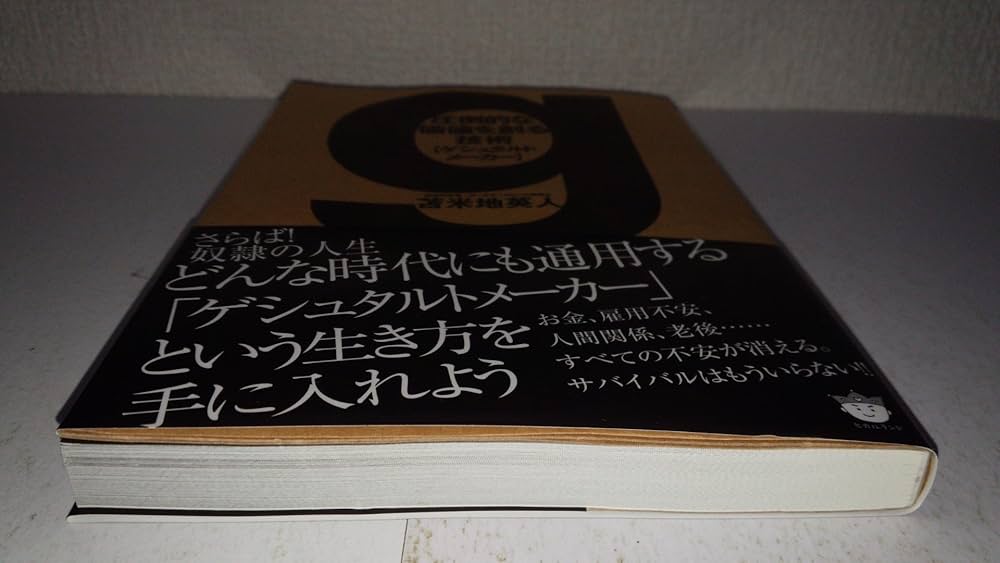 g
圧倒的な
価値を創る
技術
[ゲシュタルト
メーカー]
苫米地英人
さらば!
奴隷の人生
どんな時代にも通用する
「ゲシュタルトメーカー」
という生き方を
手に入れよう
お金、雇用不安、
人間関係、老後……
すべての不安が消える。
サバイバルはもういらない!!
ヒカルランド